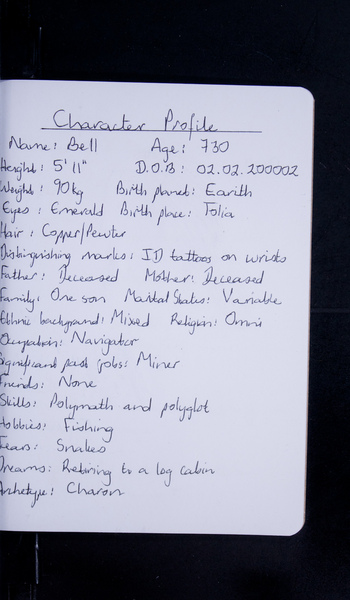 Character Profile
Name: Bell Age: 730
Height: 5'11" D.O.B: 02.02.200002
Weight: 90kg Birth planet: Earith
Eyes: Emerald Birth place: Tolia
Hair: Copper/Pewter
Distinguishing marks: ID tattoos on wrists
Father: Deceased Mother: Deceased
Family: One son Marital Status: Variable
Ethnic background: Mixed Religion: Omni
Occupation: Navigator
Significant past jobs: Miner
Friends: None
Skills: Polymath and polyglot
Hobbies: Fishing
Fears: Snakes
Dreams: Retiring to a log cabin
Archetype: Charon